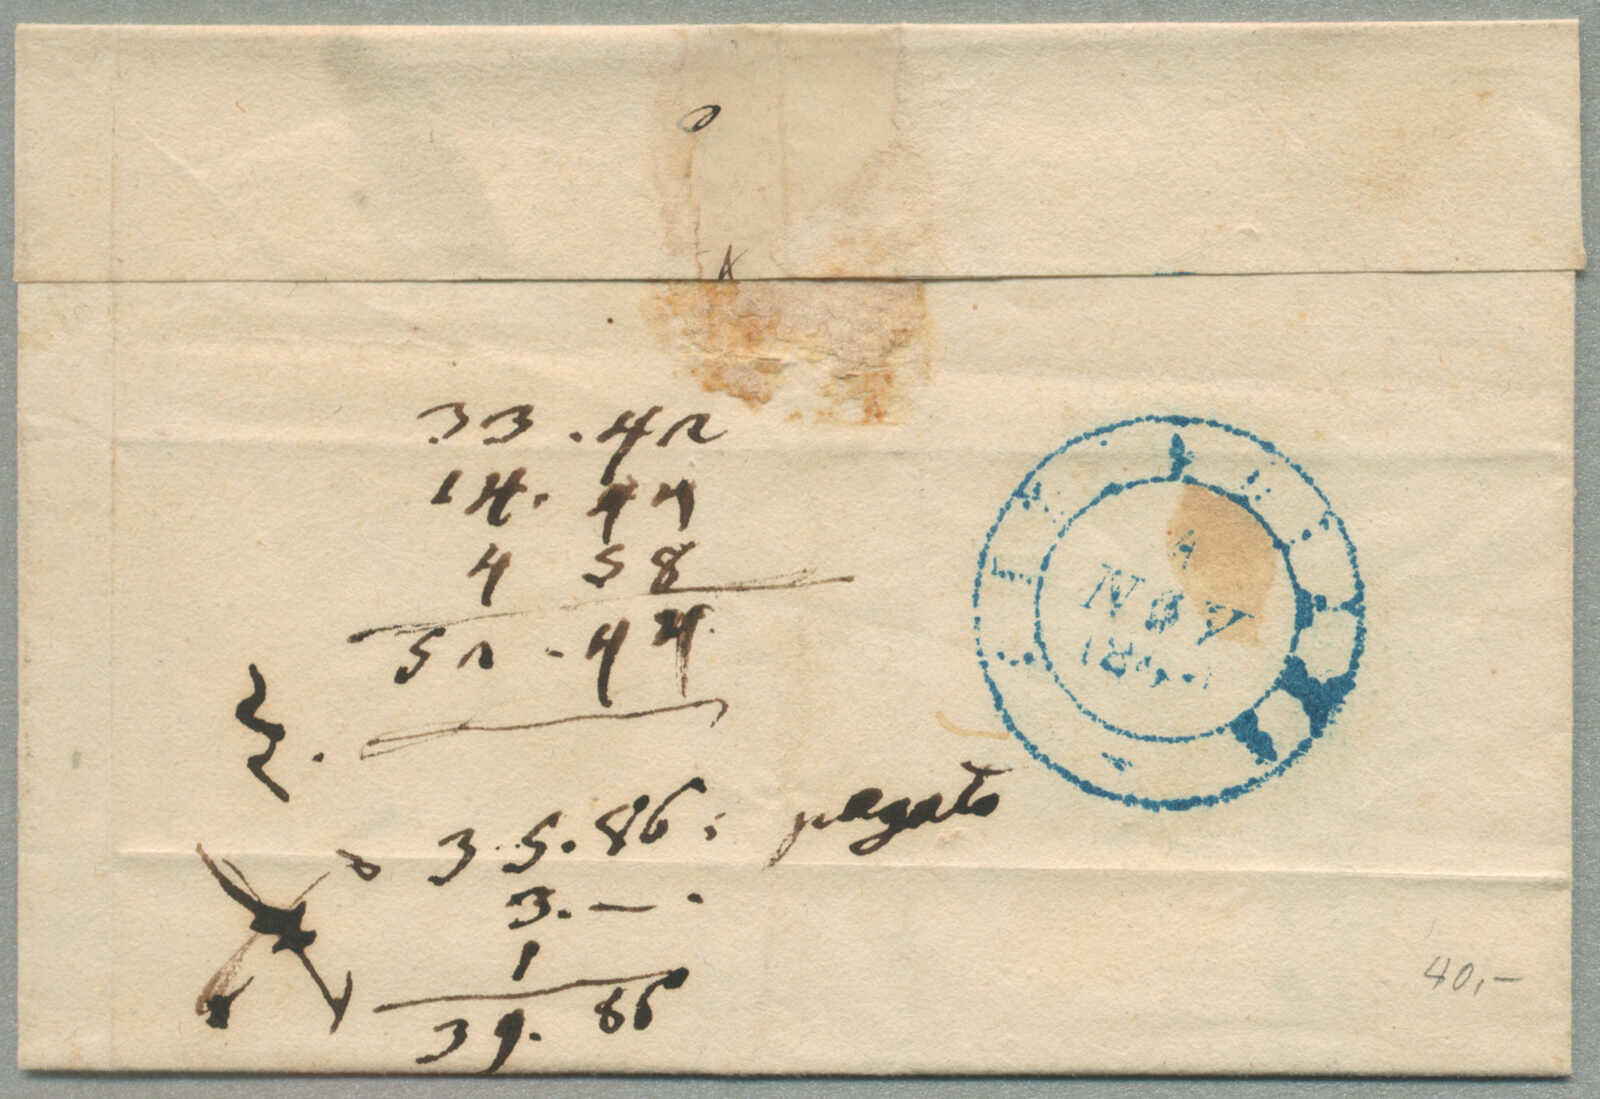 33.42
14.44
4 58
52.44
35.86: pagato
3.—.
1
39.86
NOV
40,—